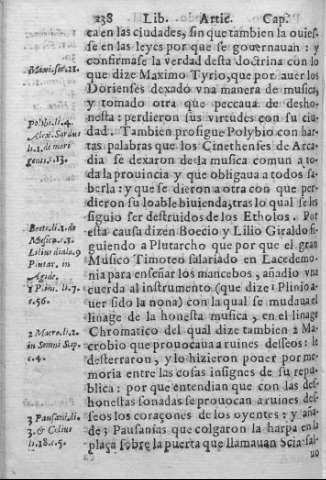 238 Lib. Artic. Cap.
ca en las ciudades, sin que tambien la ouies-
se en las leyes por que se gouernauan: y
confirmase la verdad desta doctrina con lo
Maxi. ser. 21.
que dize Maximo Tyrio, que por auer los
Dorienses dexado vna manera de musica,
y tomado otra que peccaua de desho-
nesta: perdieron sus virtudes con su ciu-
Polibi. li. 4.
dad. Tambien prosigue Polybio con har-
Alex. Sardus
tas palabras que los Cinethenses de Arca-
li. 1. de mori
dia se dexaron de la musica comun a to-
genti. c. 13.
da la prouincia y que obligaua a todos sa-
berla: y que se dieron a otra con que per-
dieron su loable biuienda, tras lo qual se les
siguio ser destruidos de los Etholos. Por
Boet. li. 1. de
esta causa dizen Boecio y Lilio Giraldo si-
Musica. c. 1.
guiendo a Plutarcho que por que el gran
Lilius dialo. 9
Musico Timoteo salariado en Lacedemo-
Plutar. in
nia para enseñar los mancebos, añadio vna
Agide.
1 Plini. li. 7.
cuerda al instrumento (que dize 1 Plinio a-
c. 56.
uer sido la nona) con la qual se mudaua el
linage de la honesta musica, en el linage
2 Macro. li. 2.
Chromatico del qual dize tambien 2 Ma-
in Somni Scip.
crobio que prouocaua a ruines desseos: le
c. 4.
desterraron, y lo hizieron poner por me-
moria entre las cosas insignes de su repu-
blica: por que entendian que con las des-
honestas sonadas se prouocan a ruines des-
3 Pausani. li.
seos los coraçones de los oyentes: y aña-
3. & Celius
de 3 Pausanias que colgaron la harpa en la
li. 18. c. 5.
plaça sobre la puerta que llamauan Scia-